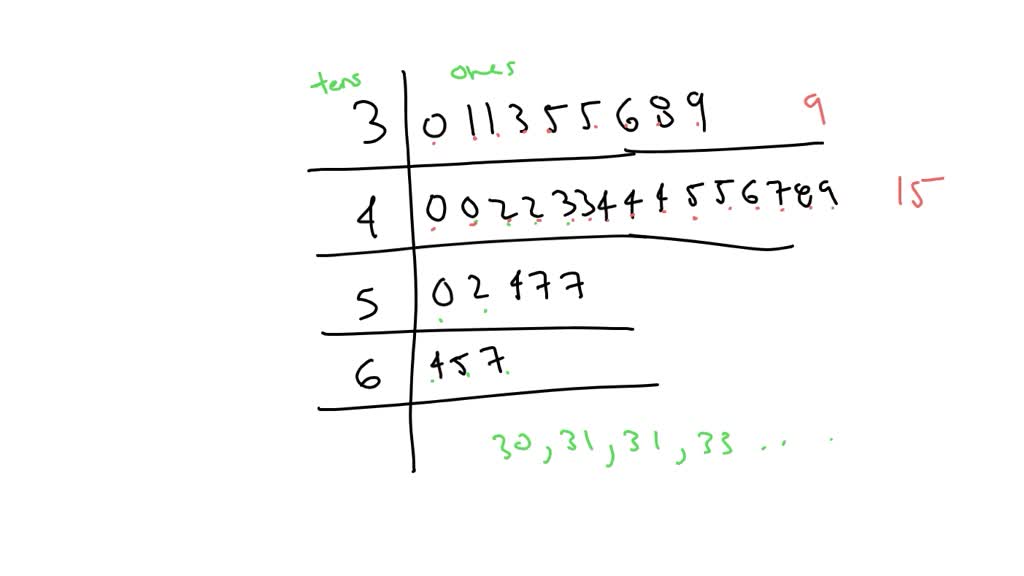 tens ones
3 0 1 1 3 5 5 6 8 9 9
4 0 0 2 2 3 3 4 4 4 5 5 6 7 8 9 15
5 0 2 4 7 7
6 4 5 7
30, 31, 31, 33 ... .